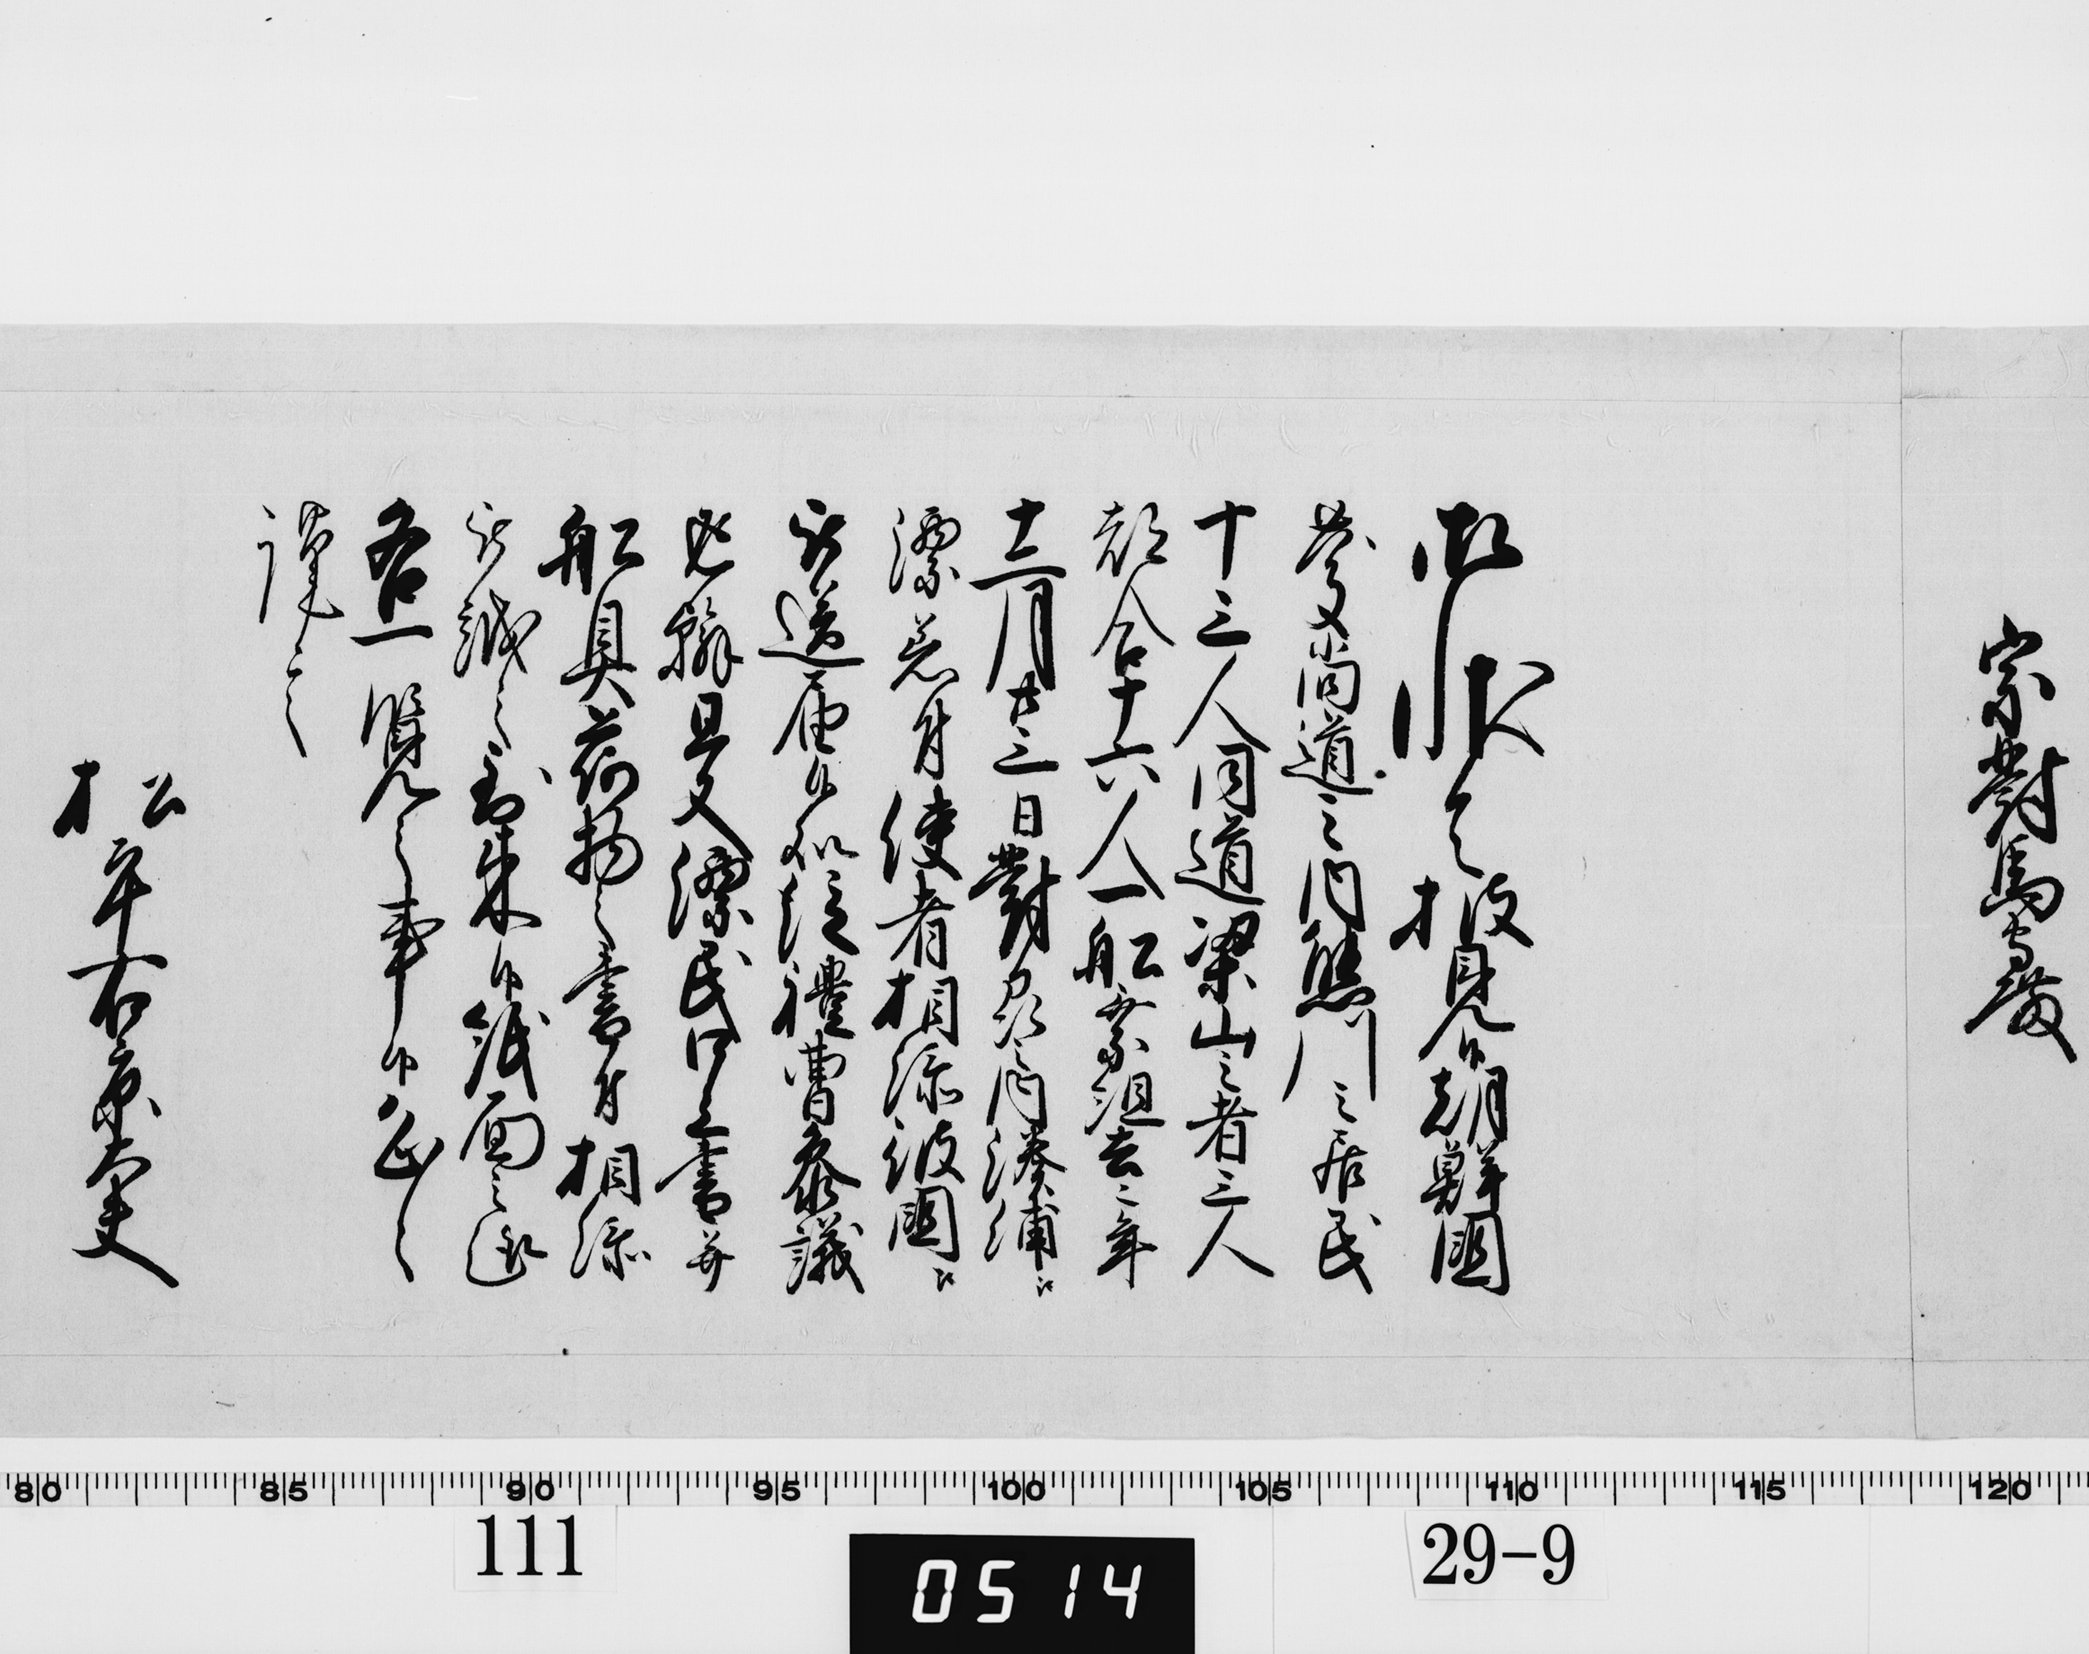 宗對馬守殿
御状令披見候朝鮮国
慶尚道之内熊川之居民
十三人同道梁山之者三人
都合十六人一船乗組去々年
十二月廿三日對州之内湊浦江
漂着付使者相添彼国江
被送届候処従礼曹参議
書翰且又漂民口上書并
船具荷物之書付相添
被誠之到来候紙面之通
各一覧之事候恐々
謹言
松平右京大夫
80 85 90 95 100 105 110 115 120
111
0514
29-9